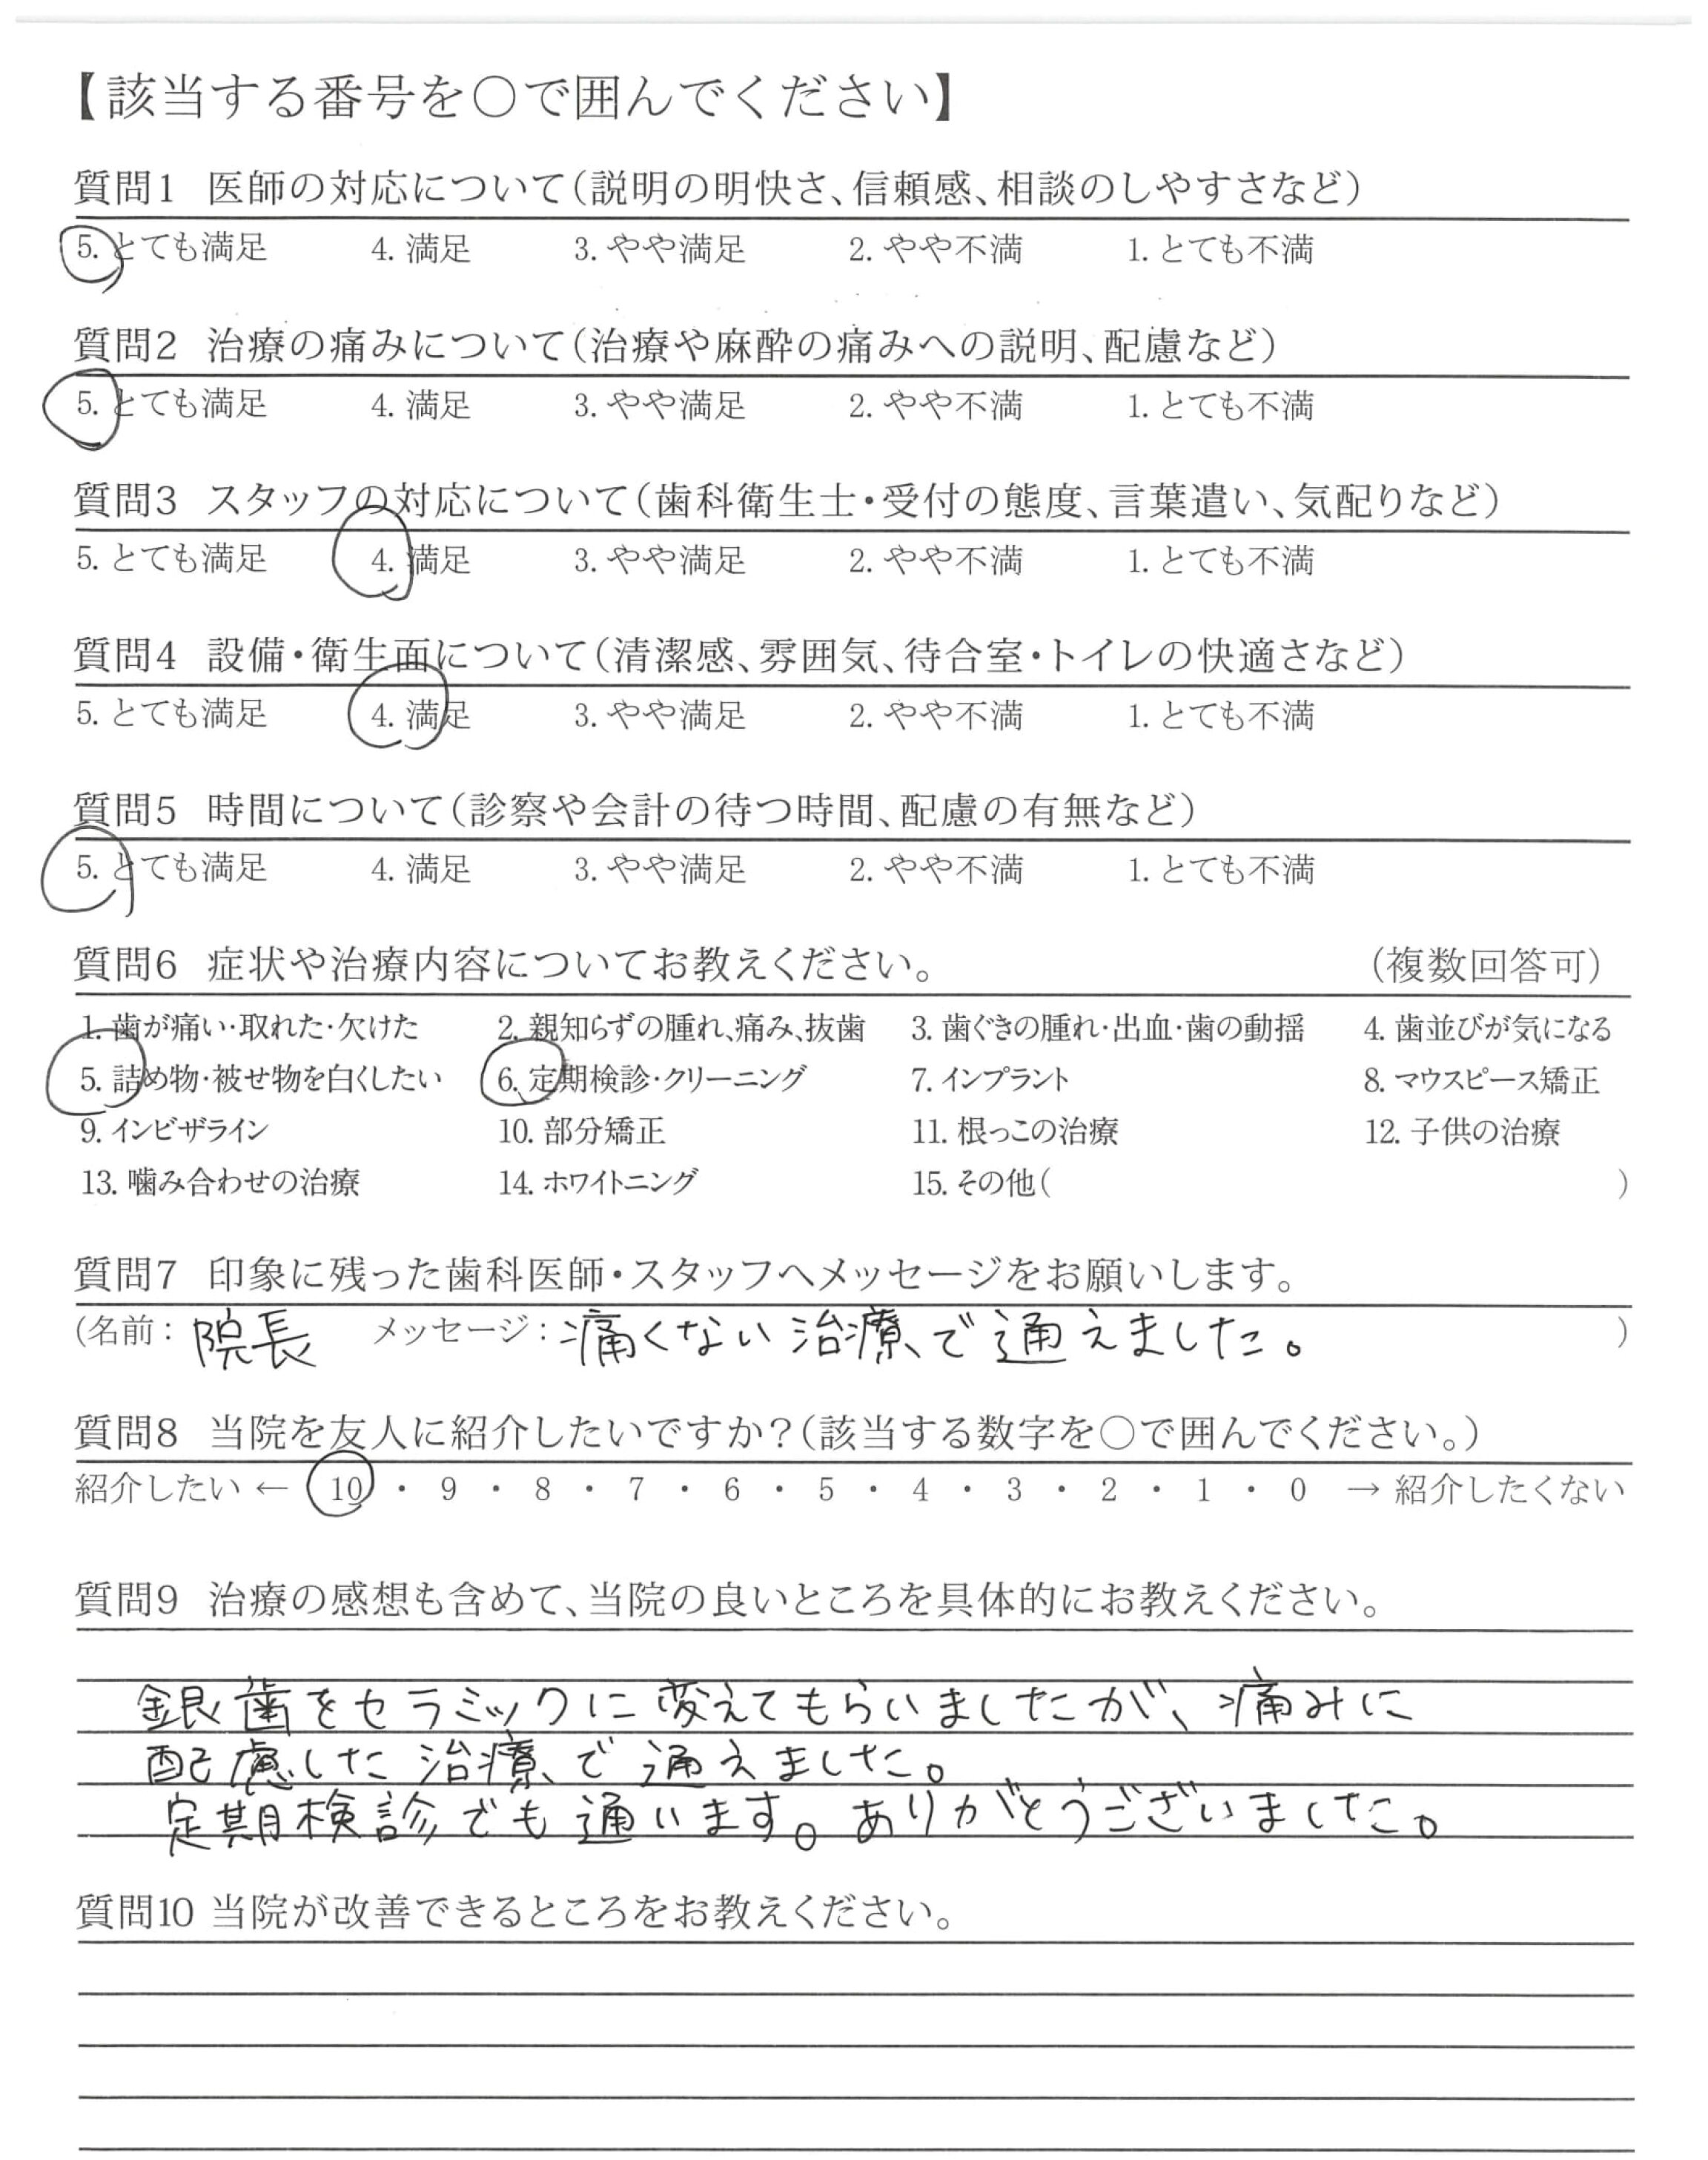 【該当する番号を○で囲んでください】
質問1 医師の対応について(説明の明快さ、信頼感、相談のしやすさなど)
5. とても満足 4. 満足 3. やや満足 2. やや不満 1. とても不満
質問2 治療の痛みについて(治療や麻酔の痛みへの説明、配慮など)
5. とても満足 4. 満足 3. やや満足 2. やや不満 1. とても不満
質問3 スタッフの対応について(歯科衛生士・受付の態度、言葉遣い、気配りなど)
5. とても満足 4. 満足 3. やや満足 2. やや不満 1. とても不満
質問4 設備・衛生面について(清潔感、雰囲気、待合室・トイレの快適さなど)
5. とても満足 4. 満足 3. やや満足 2. やや不満 1. とても不満
質問5 時間について(診察や会計の待つ時間、配慮の有無など)
5. とても満足 4. 満足 3. やや満足 2. やや不満 1. とても不満
質問6 症状や治療内容についてお教えください。 (複数回答可)
1. 歯が痛い・取れた・欠けた 2. 親知らずの腫れ、痛み、抜歯 3. 歯ぐきの腫れ・出血・歯の動揺 4. 歯並びが気になる
5. 詰め物・被せ物を白くしたい 6. 定期検診・クリーニング 7. インプラント 8. マウスピース矯正
9. インビザライン 10. 部分矯正 11. 根っこの治療 12. 子供の治療
13. 噛み合わせの治療 14. ホワイトニング 15. その他( )
質問7 印象に残った歯科医師・スタッフへメッセージをお願いします。
(名前: 院長 メッセージ: 痛くない治療で通えました。 )
質問8 当院を友人に紹介したいですか?(該当する数字を○で囲んでください。)
紹介したい ← 10 ・ 9 ・ 8 ・ 7 ・ 6 ・ 5 ・ 4 ・ 3 ・ 2 ・ 1 ・ 0 → 紹介したくない
質問9 治療の感想も含めて、当院の良いところを具体的にお教えください。
銀歯をセラミックに変えてもらいましたが、痛みに
配慮した治療で通えました。
定期検診でも通います。ありがとうございました。
質問10 当院が改善できるところをお教えください。